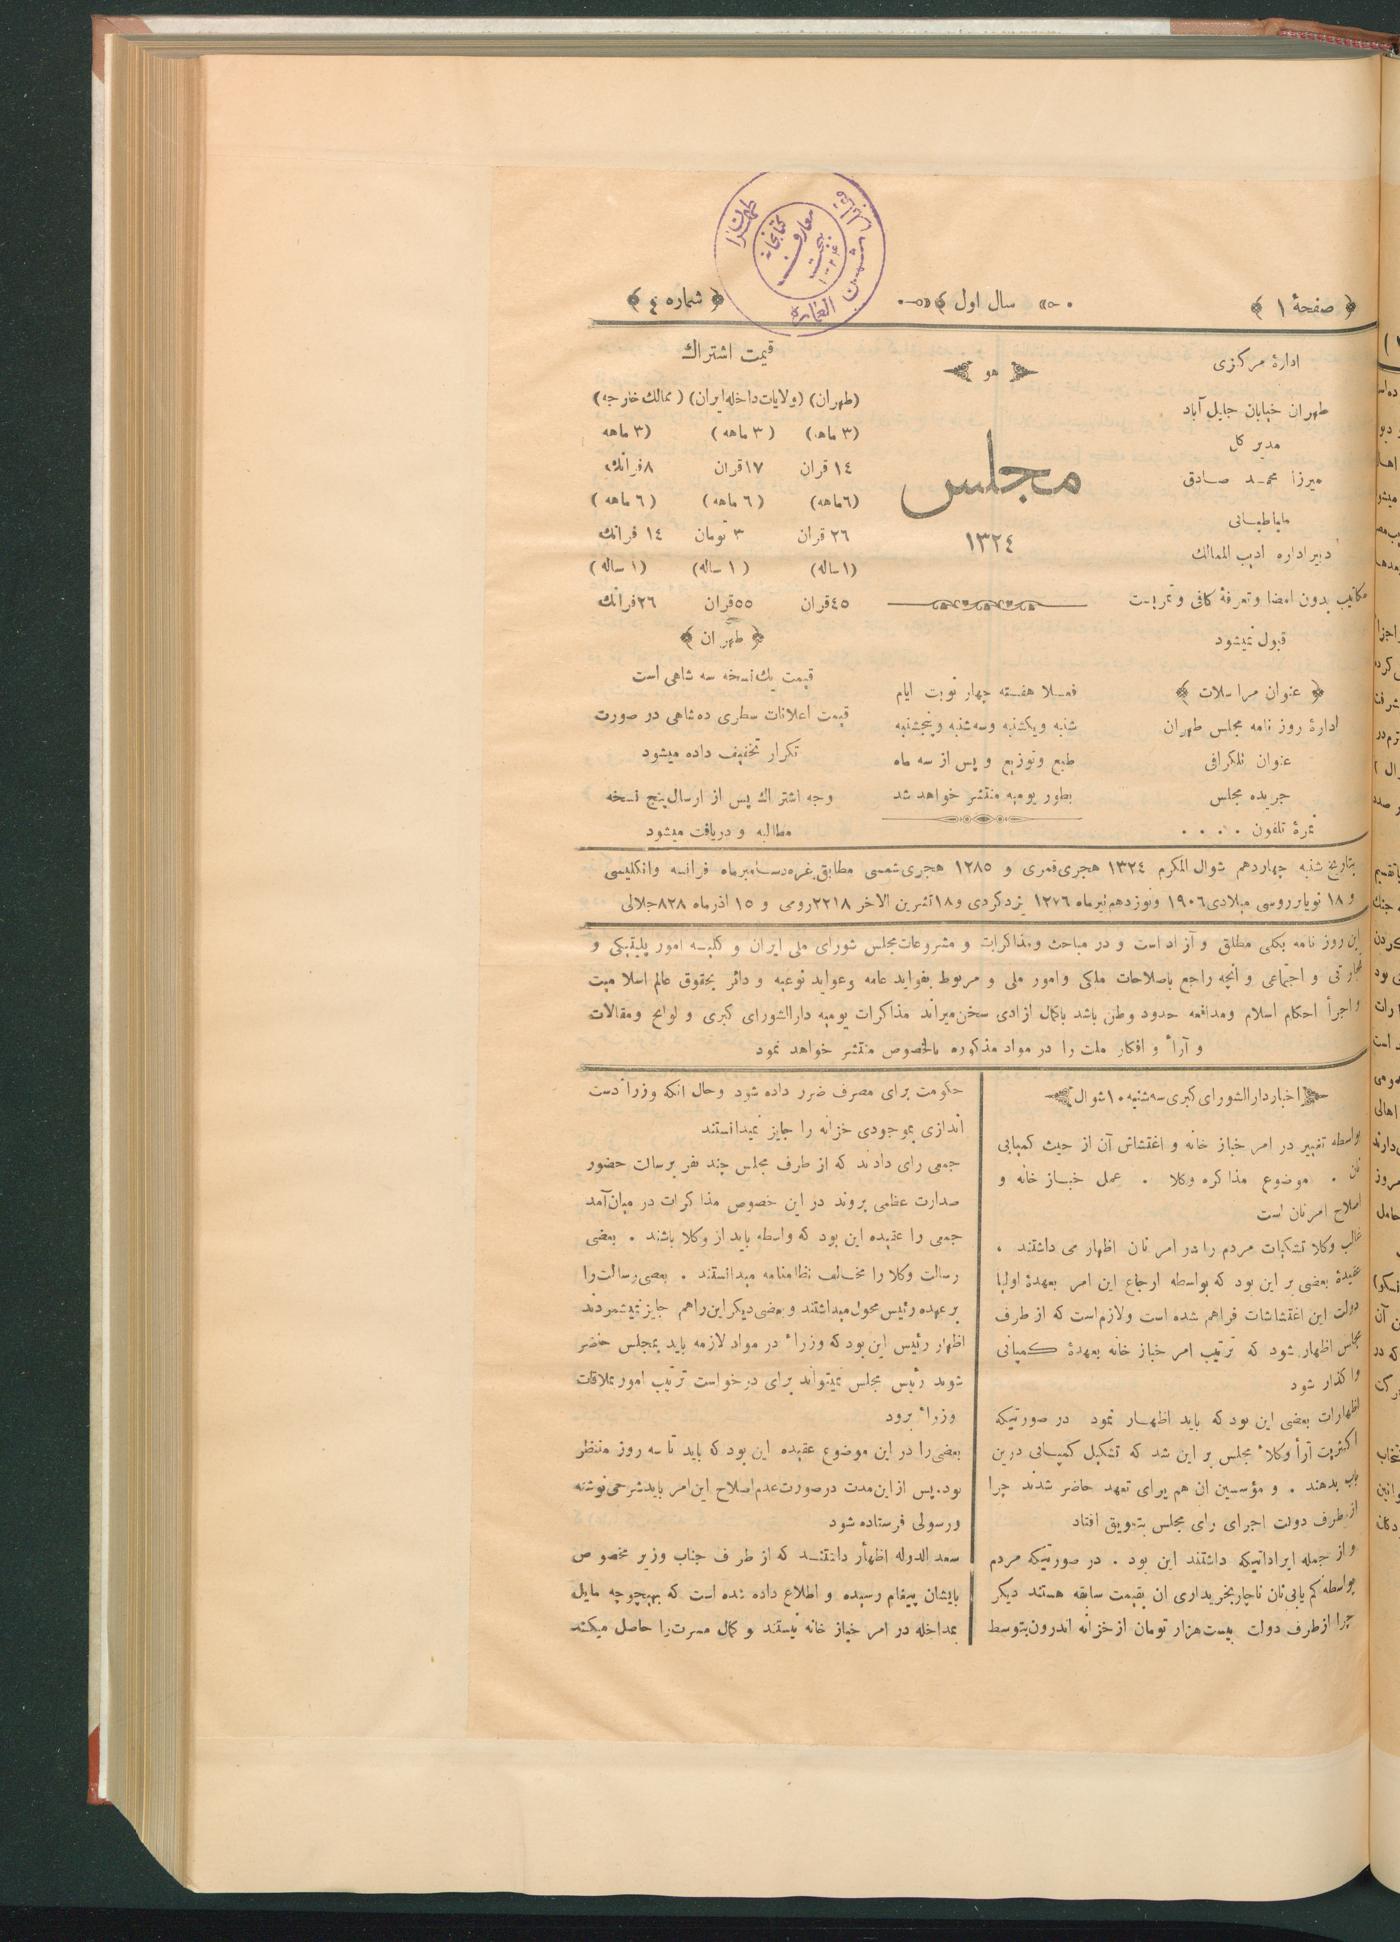 صفحهٔ ۱
سال اول
شماره ٤
ادارهٔ مرکزی
طهران خیابان جلیل آباد
مدیر کل
میرزا محمد صادق
طباطبائی
دبیر اداره ادیب الممالك
مکاتیب بدون امضا و تعرفهٔ کافی و تمر پست
قبول نمیشود
عنوان مراسلات
ادارهٔ روز نامه مجلس طهران
عنوان تلگرافی
جریده مجلس
نمرهٔ تلفون . . . .
هو
مجلس
۱۳۲٤
فعلا هفته چهار نوبت ایام
شنبه ویکشنبه وسه‌شنبه وپنجشنبه
طبع وتوزیع و پس از سه ماه
بطور یومیه منتشر خواهد شد
قیمت اشتراك
(طهران) (ولایات داخله ایران) (ممالك خارجه)
(۳ ماهه) (۳ ماهه) (۳ ماهه
۱٤ قران ۱۷قران ۸فرانك
(٦ماهه) (٦ ماهه) (٦ ماهه)
۲٦ قران ۳ تومان ۱٤ فرانك
(۱ساله) (۱ ساله) (۱ ساله)
٤٥قران ٥٥قران ۲٦فرانك
طهران
قیمت یك نسخه سه شاهی است
قیمت اعلانات سطری ده شاهی در صورت
تکرار تخفیف داده میشود
وجه اشتراك پس از ارسال پنج نسخه
مطالبه و دریافت میشود
بتاریخ شنبه چهاردهم شوال المکرم ۱۳۲٤ هجری قمری و ۱۲۸٥ هجری شمسی مطابق غره دسامبر ماه فرانسه وانگلیسی
و ۱۸ نویابر روسی میلادی ۱۹۰٦ ونوزدهم تیرماه ۱۲۷٦ یزدگردی و۱۸ تشرین الاخر ۲۲۱۸ رومی و ۱٥ اذرماه ۸۲۸ جلالی
این روز نامه بکلی مطلق و آزاد است و در مباحث ومذاکرات و مشروعات مجلس شورای ملی ایران و کلیه امور پلیتیکی و
تجارتی و اجتماعی و آنچه راجع باصلاحات ملکی وامور ملی و مربوط بفواید عامه وعواید نوعیه و دائر بحقوق عالم اسلامیت
و اجرأ احکام اسلام ومدافعه حدود وطن باشد باکمال ازادی سخن میراند مذاکرات یومیه دارالشورای کبری و لوایح ومقالات
و آرأ و افکار ملت را در مواد مذکوره بالخصوص منتشر خواهد نمود
اخبار دارالشورای کبری سه شنبه ۱۰ شوال
بواسطه تغییر در امر خباز خانه و اغتشاش آن از حیث کمیابی
نان . موضوع مذاکره وکلا . عمل خباز خانه و
اصلاح امرنان است
غالب وکلا تشکیات مردم را در امر نان اظهار می داشتند .
عقیدهٔ بعضی بر این بود که بواسطه ارجاع این امر بعهدهٔ اولیا
دولت این اغتشاشات فراهم شده است ولازم است که از طرف
مجلس اظهار شود که ترتیب امر خباز خانه بعهدهٔ کمپانی
واگذار شود
اظهارات بعضی این بود که باید اظهار نمود در صورتیکه
اکثریت آرأ وکلأ مجلس بر این شد که تشکیل کمپانی درین
باب بدهند . و مؤسسین ان هم برای تعهد حاضر شدند چرا
از طرف دولت اجرای رای مجلس بتعویق افتاد
و از جمله ایراداتیکه داشتند این بود . در صورتیکه مردم
بواسطه کم یابی نان ناچار بخریداری ان بقیمت سابقه هستند دیگر
چرا از طرف دولت بیست هزار تومان از خزانه اندرون بتوسط
حکومت برای مصرف ضرر داده شود وحال انکه وزرأ دست
اندازی بموجودی خزانه را جایز نمیدانستند
جمعی رای دادند که از طرف مجلس چند نفر برسالت حضور
صدارت عظمی بروند در این خصوص مذاکرات در میان آمد
جمعی را عقیده این بود که واسطه باید از وکلا باشند . بعضی
رسالت وکلا را مخالف نظامنامه میدانستند . بعضی رسالت را
بر عهده رئیس محول میداشتند و بعضی دیگر این راهم جایز نمیشمردند
اظهار رئیس این بود که وزرأ در مواد لازمه باید بمجلس حاضر
شوند رئیس مجلس نمیتواند برای درخواست ترتیب امور بملاقات
وزرأ برود
بعضی را در این موضوع عقیده این بود که باید تا سه روز منتظر
بود. پس از این مدت در صورت عدم اصلاح این امر باید شرحی نوشته
ورسولی فرستاده شود
سعد الدوله اظهار داشتند که از طرف جناب وزیر مخصوص
بایشان پیغام رسیده و اطلاع داده شده است که بهیچوجه مایل
بمداخله در امر خباز خانه نیستند و کمال مسرت را حاصل میکنند